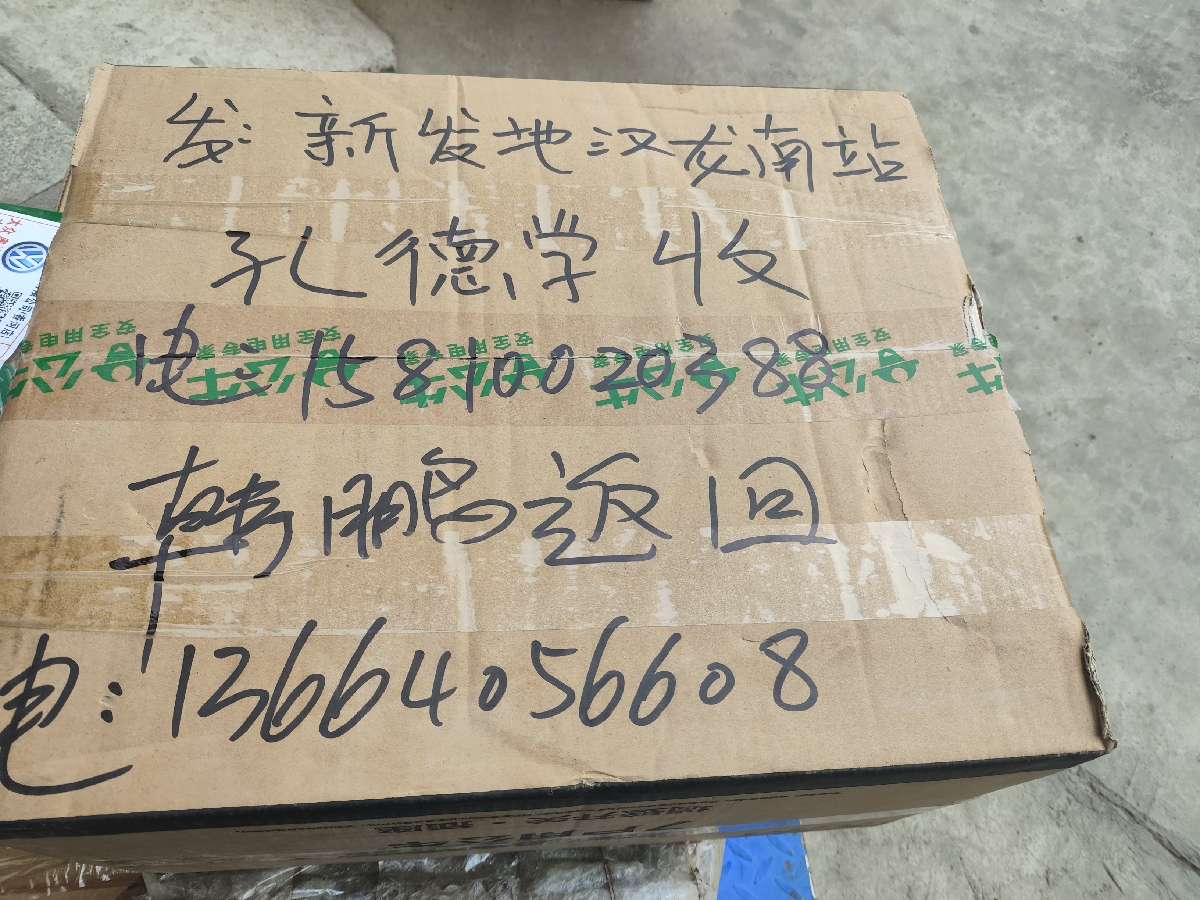 发:新发地汉龙南站
孔德学 收
电:15810020388
韩鹏返回
电:13664056608
安全用电专家
公牛